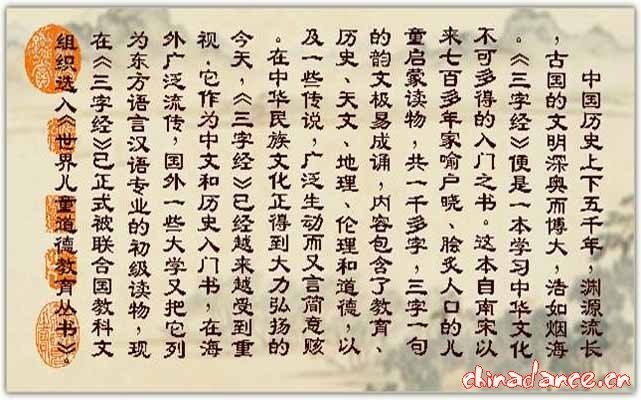 中国历史上下五千年，渊源流长
，古国的文明深奥而博大，浩如烟海
。《三字经》便是一本学习中华文化
不可多得的入门之书。这本自南宋以
来七百多年家喻户晓、脍炙人口的儿
童启蒙读物，共一千多字，三字一句
的韵文极易成诵，内容包含了教育、
历史、天文、地理、伦理和道德，以
及一些传说，广泛生动而又言简意赅
。在中华民族文化正得到大力弘扬的
今天，《三字经》已经越来越受到重
视，它作为中文和历史入门书，在海
外广泛流传，国外一些大学又把它列
为东方语言汉语专业的初级读物，现
在《三字经》已正式被联合国教科文
组织选入《世界儿童道德教育丛书》。
chinadance.cn